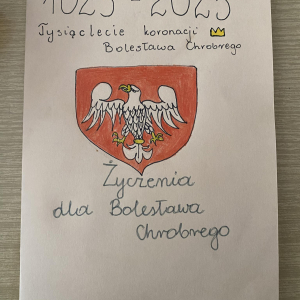 1025 - 2025
Tysiąclecie koronacji
Bolesława Chrobrego
Życzenia
dla Bolesława
Chrobrego